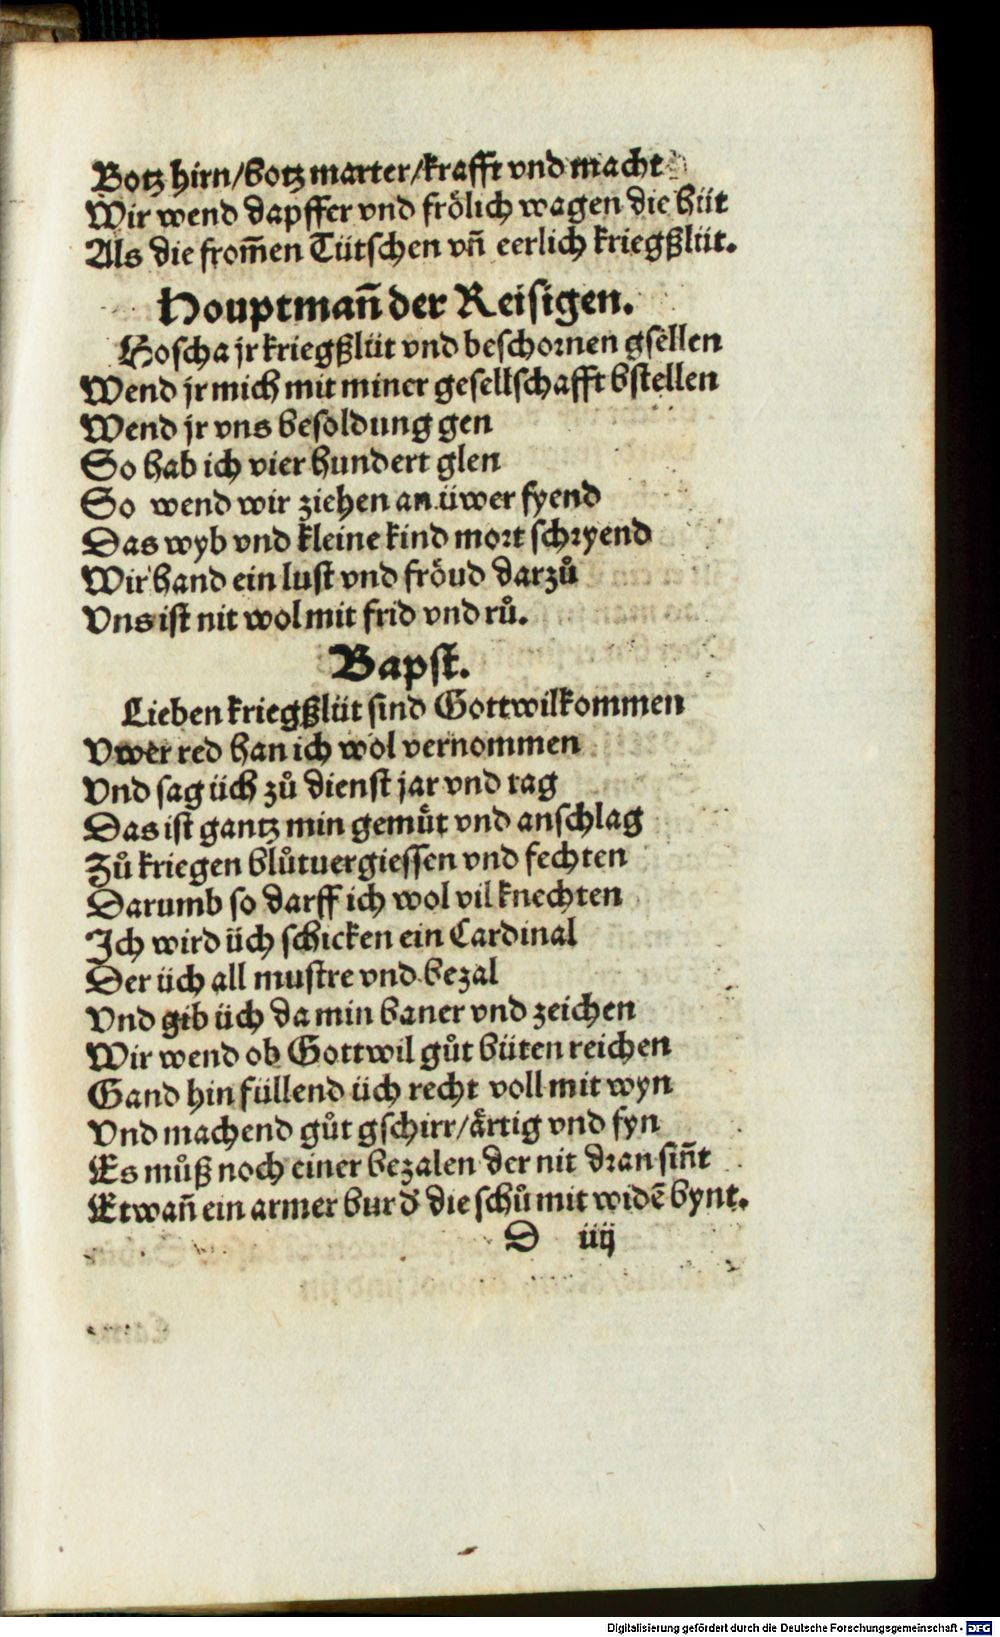 Botz hirn/botz marter/krafft vnd macht
Wir wend dapffer vnd frölich wagen die hüt
Als die from̄en Tütschen vn̄ eerlich kriegßlüt.
Houptman̄ der Reisigen.
Hoscha jr kriegßlüt vnd beschornen gsellen
Wend jr mich mit miner gesellschafft bstellen
Wend jr vns besoldung gen
So hab ich vier hundert glen
So wend wir ziehen an üwer fyend
Das wyb vnd kleine kind mort schryend
Wir hand ein lust vnd fröud darzů
Vns ist nit wol mit frid vnd rů.
Bapst.
Lieben kriegßlüt sind Gottwilkommen
Vwer red han ich wol vernommen
Vnd sag üch zů dienst jar vnd tag
Das ist gantz min gemüt vnd anschlag
Zů kriegen blůtuergiessen vnd fechten
Darumb so darff ich wol vil knechten
Ich wird üch schicken ein Cardinal
Der üch all mustre vnd bezal
Vnd gib üch da min baner vnd zeichen
Wir wend ob Gott wil gůt büten reichen
Gand hin füllend üch recht voll mit wyn
Vnd machend gůt gschirr/ärtig vnd fyn
Es můß noch einer bezalen der nit dran sin̄t
Etwan̄ ein armer bur d̄ die schů mit widē bynt.
D iiij
Digitalisierung gefördert durch die Deutsche Forschungsgemeinschaft - DFG